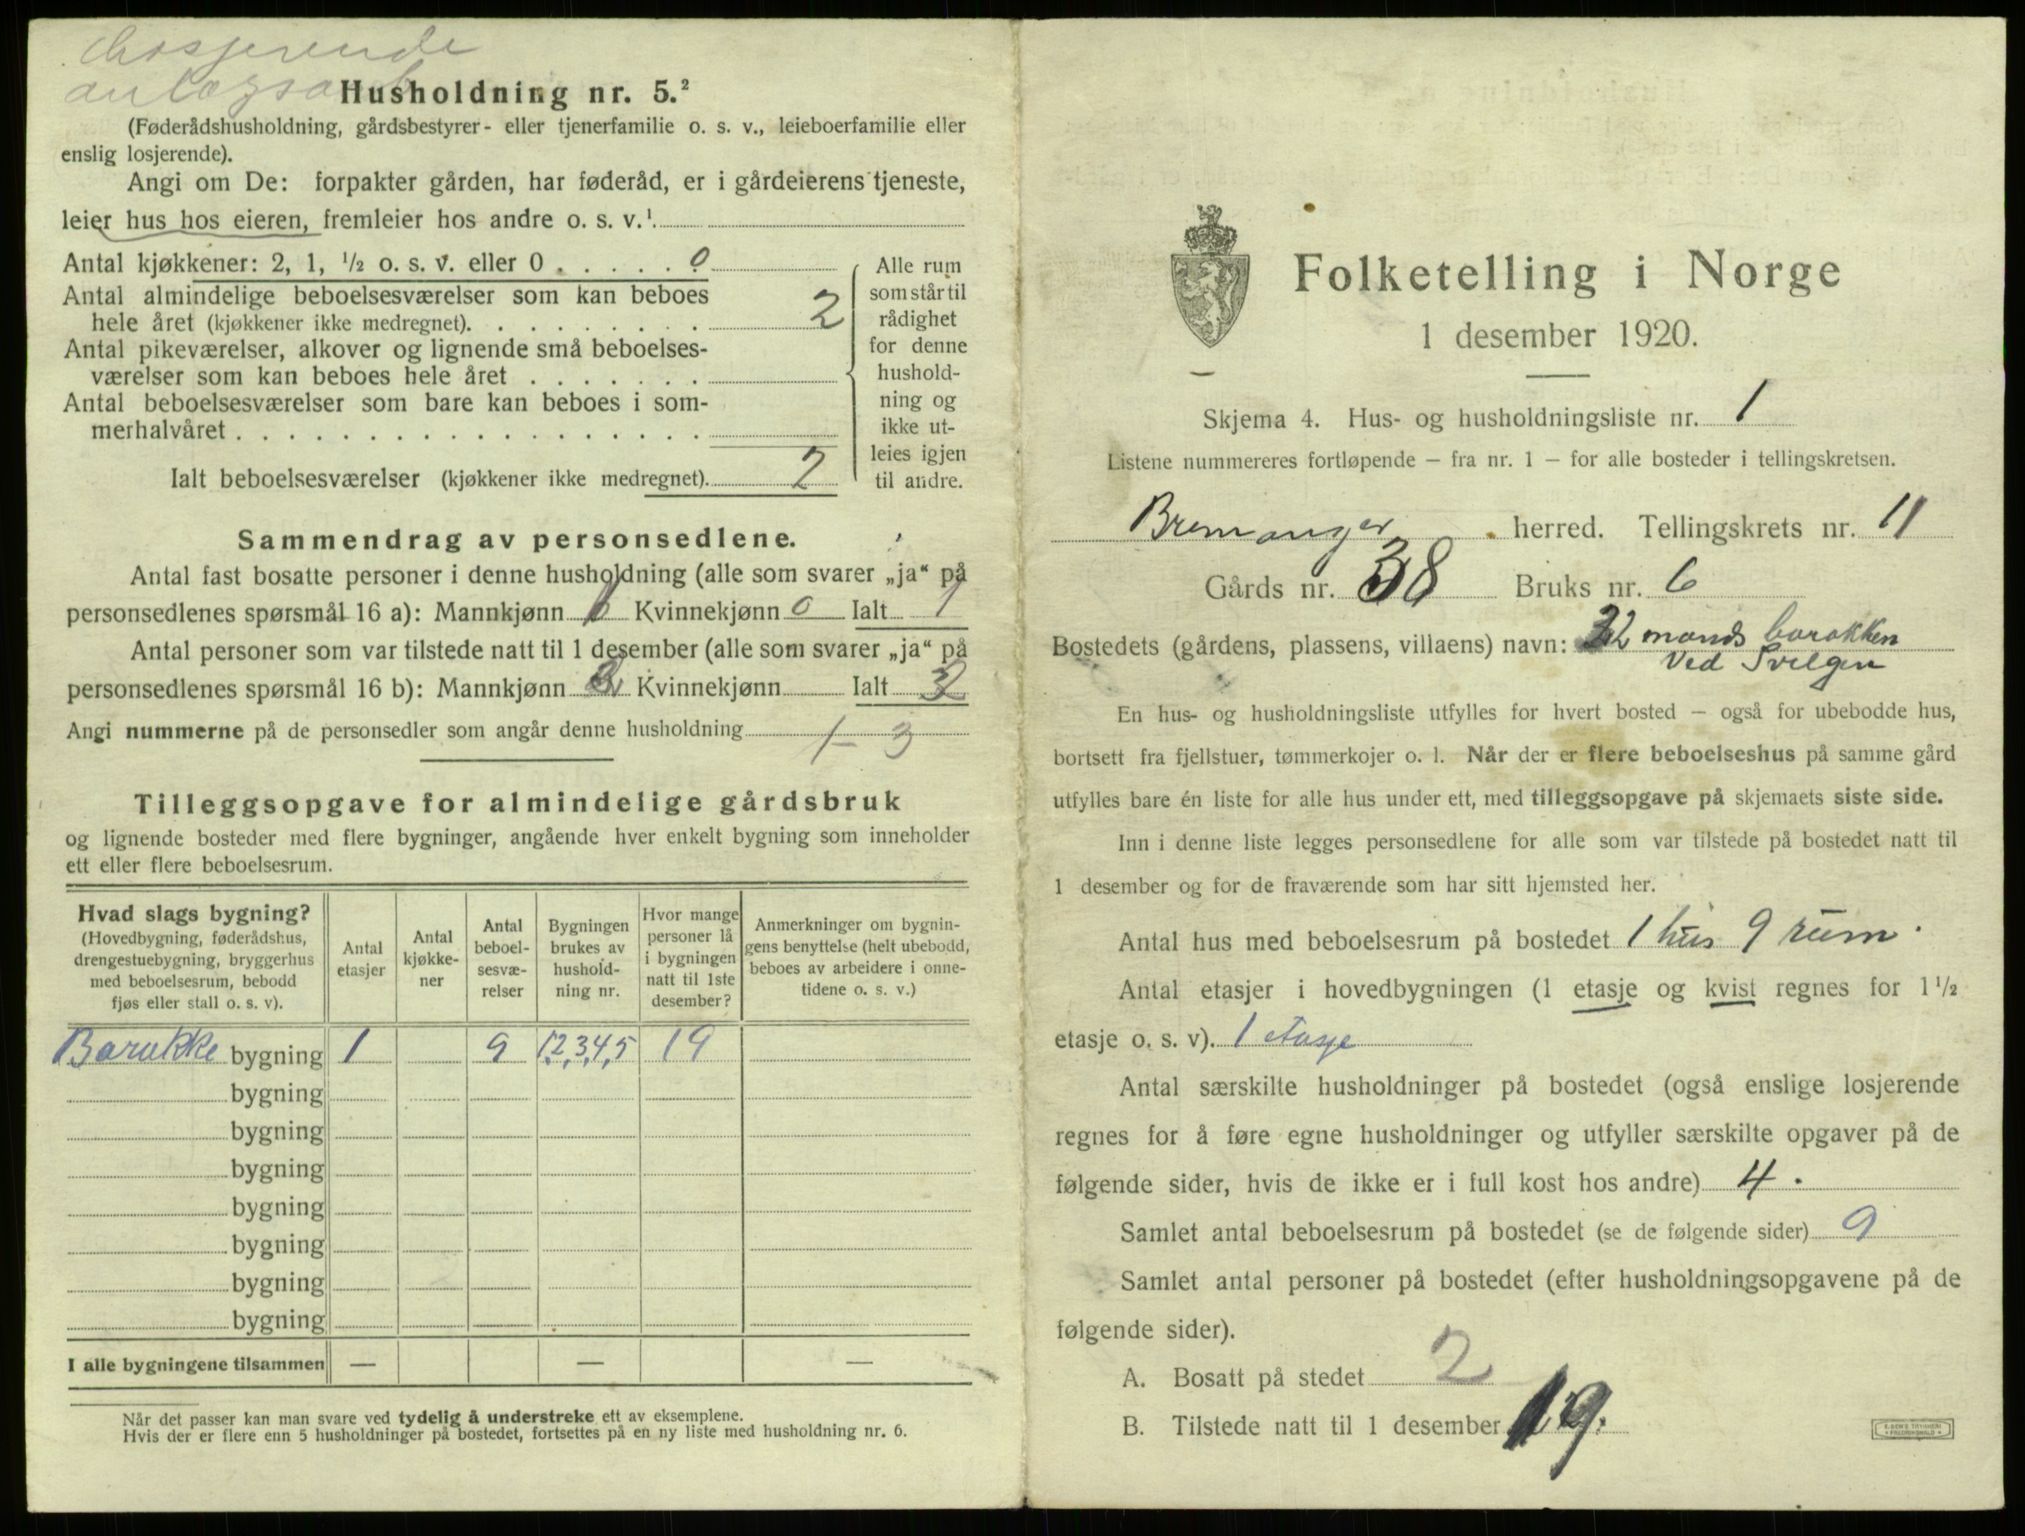 losjerende
anlægsarb
Husholdning nr. 5.²
(Føderådshusholdning, gårdsbestyrer- eller tjenerfamilie o. s. v., leieboerfamilie eller
enslig losjerende).
Angi om De: forpakter gården, har føderåd, er i gårdeierens tjeneste,
leier hus hos eieren, fremleier hos andre o. s. v.¹
Antal kjøkkener: 2, 1, ½ o. s. v. eller 0 . . . . . 0
Antal almindelige beboelsesværelser som kan beboes
hele året (kjøkkener ikke medregnet). . . . . . . . . 2
Antal pikeværelser, alkover og lignende små beboelses-
værelser som kan beboes hele året . . . . . . .
Antal beboelsesværelser som bare kan beboes i som-
merhalvåret . . . . . . . . . . . . . . . . . .
Ialt beboelsesværelser (kjøkkener ikke medregnet). 2
Alle rum
som står til
rådighet
for denne
hushold-
ning og
ikke ut-
leies igjen
til andre.
Sammendrag av personsedlene.
Antal fast bosatte personer i denne husholdning (alle som svarer „ja“ på
personsedlenes spørsmål 16 a): Mannkjønn 1 Kvinnekjønn 0 Ialt 1
Antal personer som var tilstede natt til 1 desember (alle som svarer „ja“ på
personsedlenes spørsmål 16 b): Mannkjønn Kvinnekjønn Ialt
Angi nummerne på de personsedler som angår denne husholdning 1-3
Tilleggsopgave for almindelige gårdsbruk
og lignende bosteder med flere bygninger, angående hver enkelt bygning som inneholder
ett eller flere beboelsesrum.
Hvad slags bygning?
(Hovedbygning, føderådshus,
drengestuebygning, bryggerhus
med beboelsesrum, bebodd
fjøs eller stall o. s. v).
Antal
etasjer
Antal
kjøkke-
ner
Antal
beboel-
sesvæ-
relser
Bygningen
brukes av
hushold-
ning nr.
Hvor mange
personer lå
i bygningen
natt til 1ste
desember?
Anmerkninger om bygnin-
gens benyttelse (helt ubebodd,
beboes av arbeidere i onne-
tidene o. s. v.)
Barakke bygning 1 9 1,2,3,4,5 19
bygning
bygning
bygning
bygning
bygning
bygning
bygning
I alle bygningene tilsammen — — —
Når det passer kan man svare ved tydelig å understreke ett av eksemplene.
Hvis der er flere enn 5 husholdninger på bostedet, fortsettes på en ny liste med husholdning nr. 6.
Folketelling i Norge
1 desember 1920.
Skjema 4. Hus- og husholdningsliste nr. 1
Listene nummereres fortløpende – fra nr. 1 – for alle bosteder i tellingskretsen.
Bremanger herred. Tellingskrets nr. 11
Gårds nr. 38 Bruks nr. 6
Bostedets (gårdens, plassens, villaens) navn: 32 mands barakken
Ved Svelgen
En hus- og husholdningsliste utfylles for hvert bosted – også for ubebodde hus,
bortsett fra fjellstuer, tømmerkojer o. l. Når der er flere beboelseshus på samme gård
utfylles bare én liste for alle hus under ett, med tilleggsopgave på skjemaets siste side.
Inn i denne liste legges personsedlene for alle som var tilstede på bostedet natt til
1 desember og for de fraværende som har sitt hjemsted her.
Antal hus med beboelsesrum på bostedet 1 hus 9 rum.
Antal etasjer i hovedbygningen (1 etasje og kvist regnes for 1 ½
etasje o. s. v). 1 etasje
Antal særskilte husholdninger på bostedet (også enslige losjerende
regnes for å føre egne husholdninger og utfyller særskilte opgaver på de
følgende sider, hvis de ikke er i full kost hos andre) 4.
Samlet antal beboelsesrum på bostedet (se de følgende sider) 9
Samlet antal personer på bostedet (efter husholdningsopgavene på de
følgende sider).
A. Bosatt på stedet 2
B. Tilstede natt til 1 desember 19.